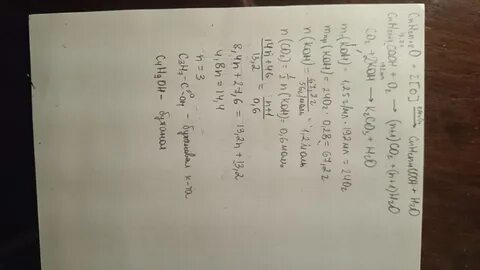 CnH2n+2O + 2[O] → CnH2n+1COOH + H2O
CnH2n+1COOH + O2 → (n+1)CO2 + (n+1)H2O
CO2 + 2KOH → K2CO3 + H2O
m(KOH) = 1,25 г/мл · 192 мл = 240 г
m(KOH) = 240 г · 0,28 = 67,2 г
n(KOH) = 67,2 г / 56 г/моль = 1,2 моль
n(CO2) = 1/2 n(KOH) = 0,6 моль
14n+46 / 13,2 = n+1 / 0,6
8,4n + 27,6 = 13,2n + 13,2
4,8n = 14,4
n = 3
C3H7-C-OH - бутановая к-та
C4H9OH - бутанол